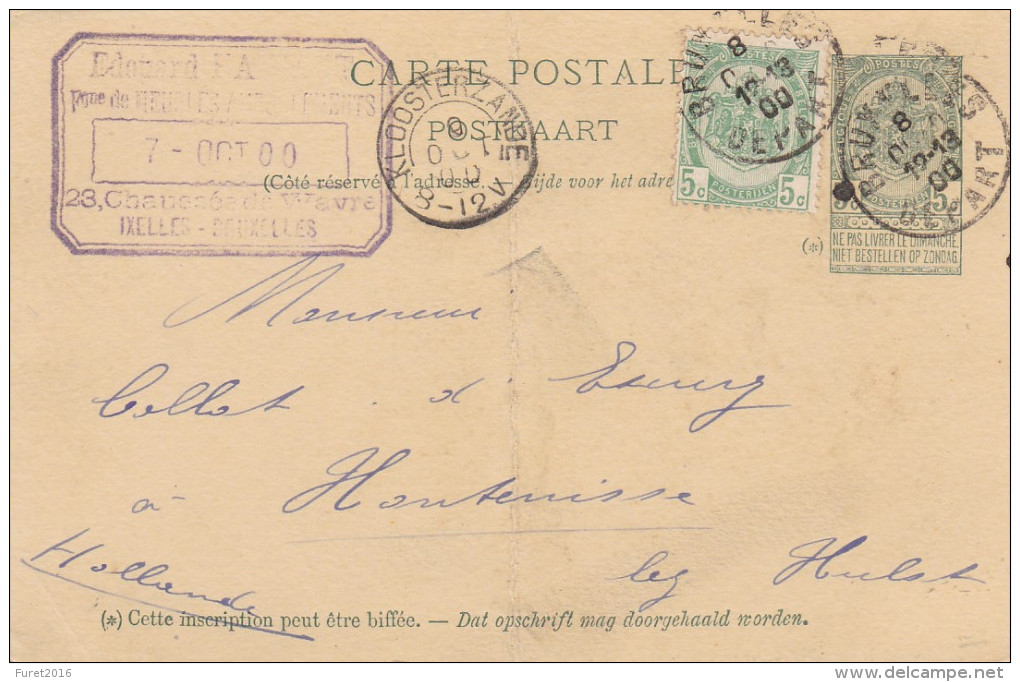 Edouard
Fque de MEUBLES
7 - OCT 00
23, Chaussée de Wavre
IXELLES - BRUXELLES
CARTE POSTALE
POSTKAART
(Côté réservé à l'adresse. ijde voor het adre
KLOOSTERZANDE
9
OCT
00
8-12 V
BRUX LLES
8
12-13
00
DEPART
5c POSTERIJEN 5c
POSTES
BRUX LLES
8
12-13
00
DEPART
(*)
NE PAS LIVRER LE DIMANCHE
NIET BESTELLEN OP ZONDAG
Monsieur
Collot d'
à Hontenisse
Hollande
by Hulst
(*) Cette inscription peut être biffée. — Dat opschrift mag doorgehaald worden.
Furet2016
delcampe.net